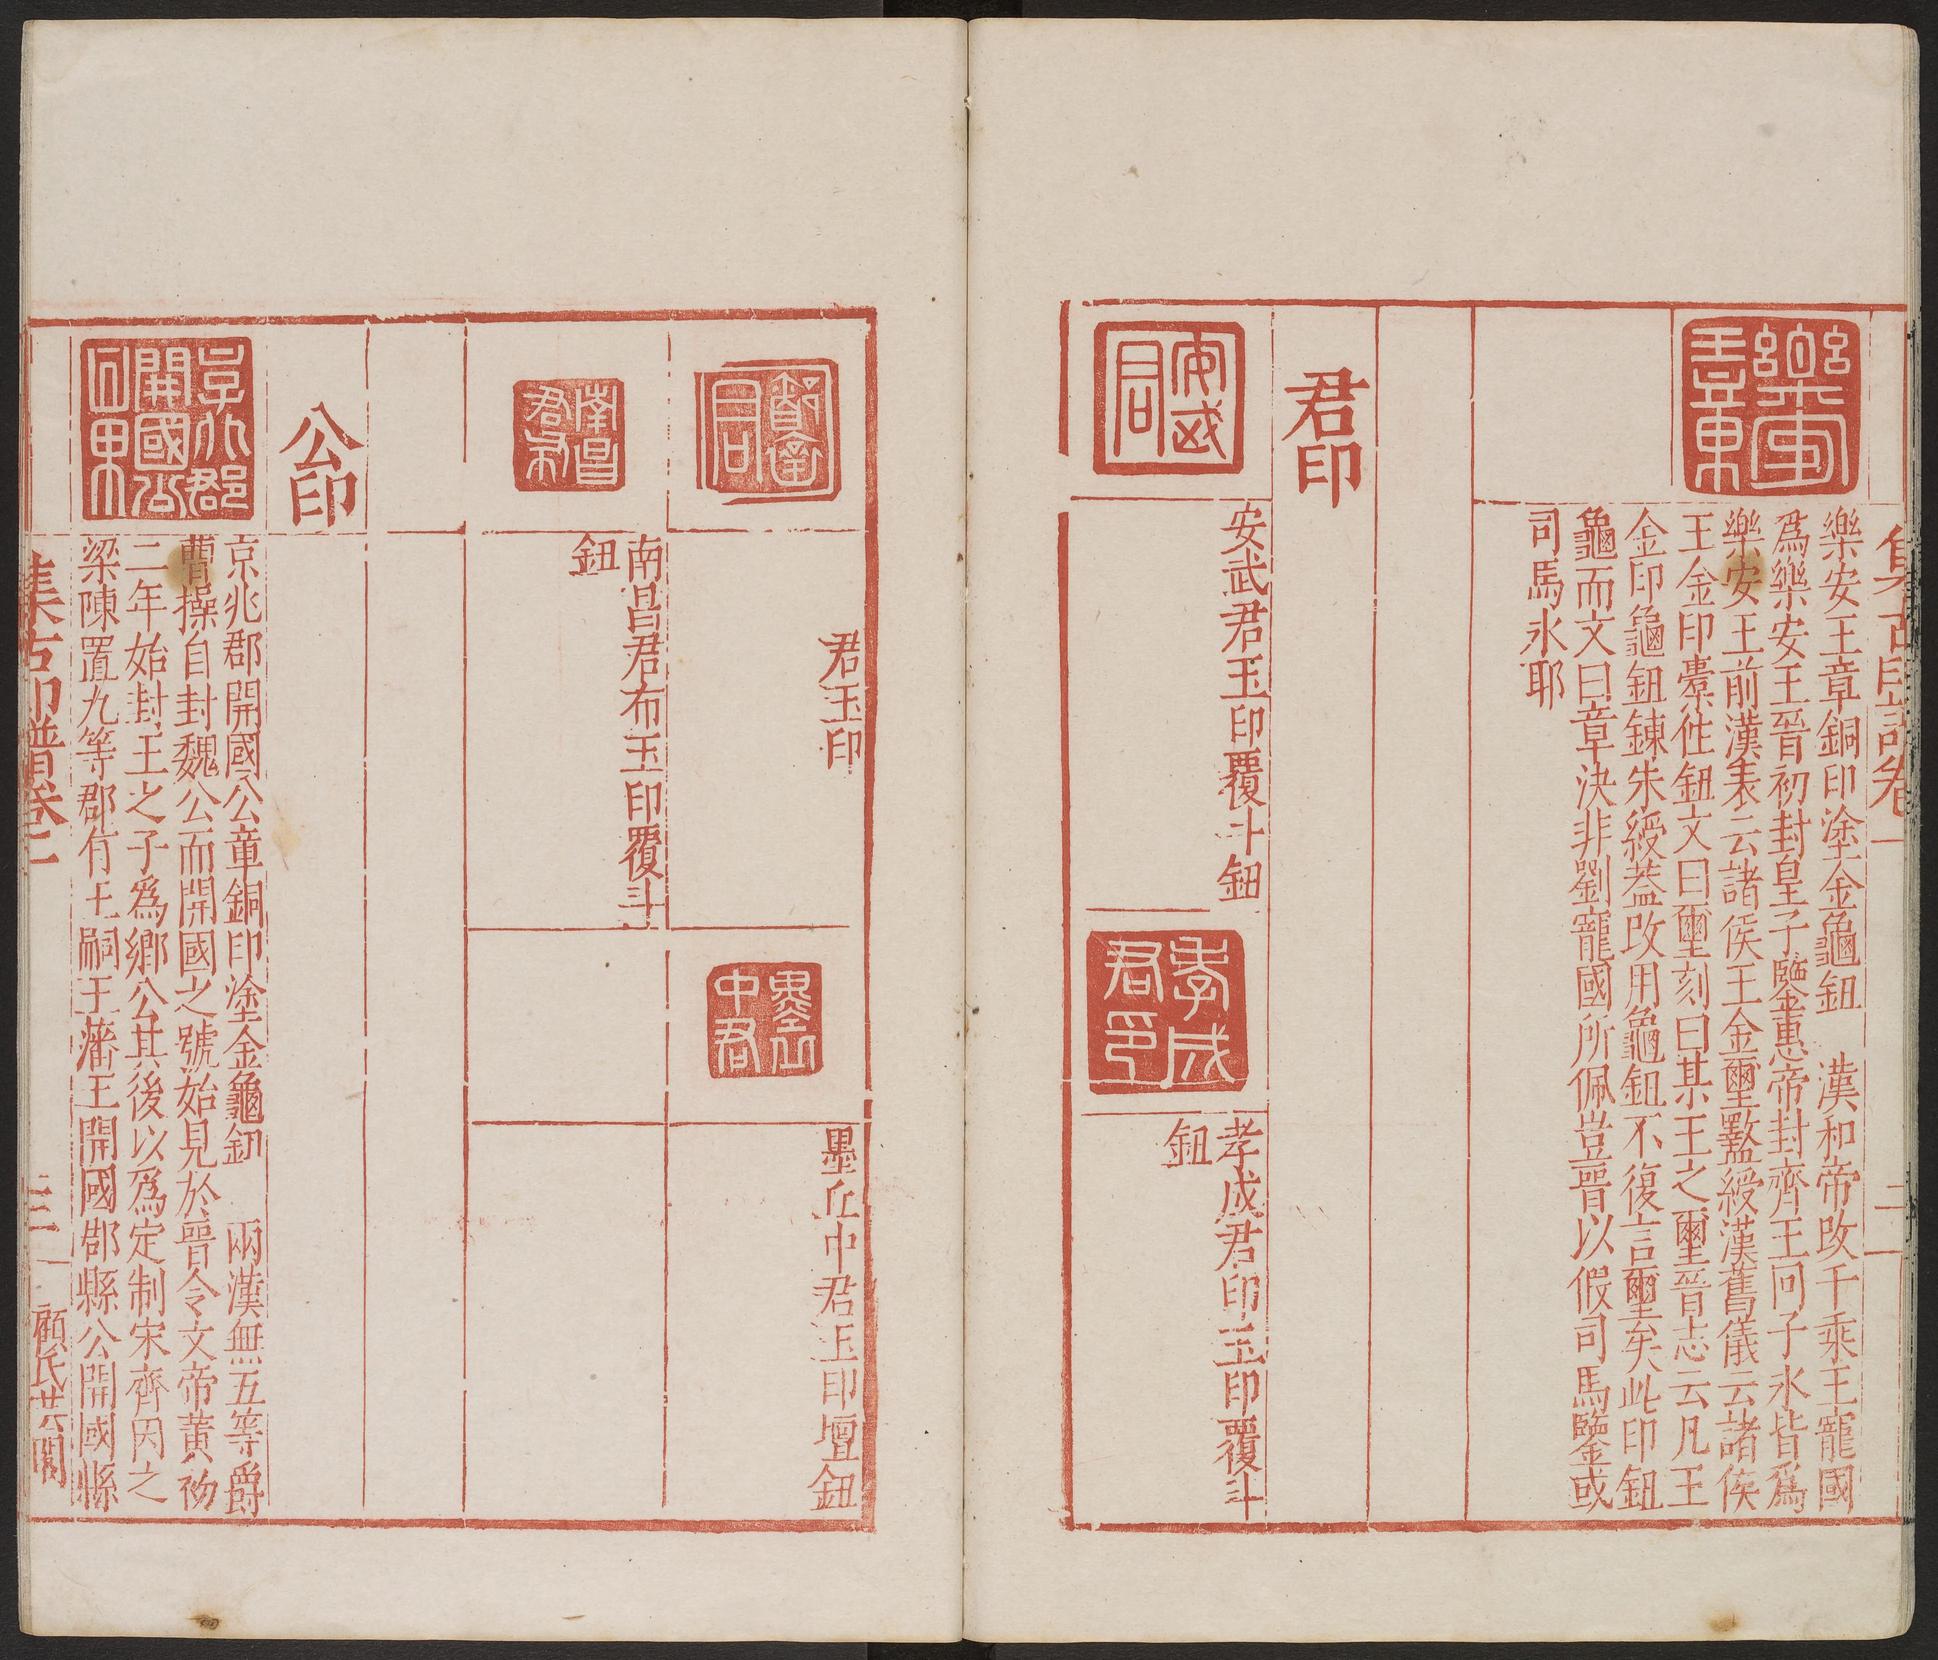 集古印譜卷一
二
樂安王章
樂安王章銅印塗金龜鈕　漢和帝改千乘王寵國
爲樂安王晉初封皇子鑒惠帝封齊王冏子氷皆爲
樂安王前漢表云諸侯王金璽盭綬漢舊儀云諸侯
王金印橐佗鈕文曰璽刻曰某王之璽晉志云凡王
金印龜鈕錬朱綬葢改用龜鈕不復言璽矣此印鈕
龜而文曰章決非劉寵國所佩豈晉以假司馬鑒或
司馬氷耶
君印
安武君
安武君玉印覆斗鈕
孝成君印
孝成君印玉印覆斗
鈕
君
君玉印
墨丘中君
墨丘中君玉印壇鈕
南昌君布
南昌君布玉印覆斗
鈕
公印
京兆郡開國公章
京兆郡開國公章銅印塗金龜鈕　兩漢無五等爵
曹操自封魏公而開國之號始見於晉令文帝黃初
二年始封王之子爲鄉公其後以爲定制宋齊因之
梁陳置九等郡有王嗣王藩王開國郡縣公開國縣
集古印譜卷二
三
顧氏芸閣